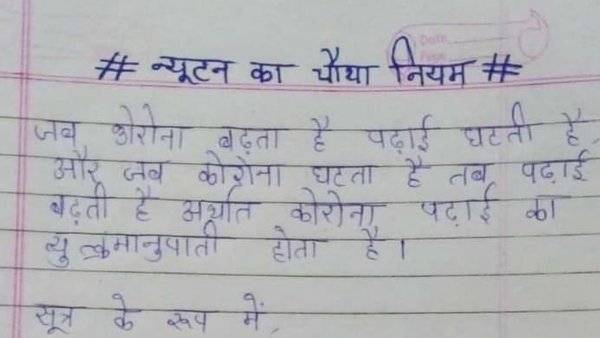 # न्यूटन का चौथा नियम #
जब कोरोना बढ़ता है पढ़ाई घटती है,
और जब कोरोना घटता है तब पढ़ाई
बढ़ती है अर्थात कोरोना पढ़ाई का
व्युत्क्रमानुपाती होता है।
सूत्र के रूप में,